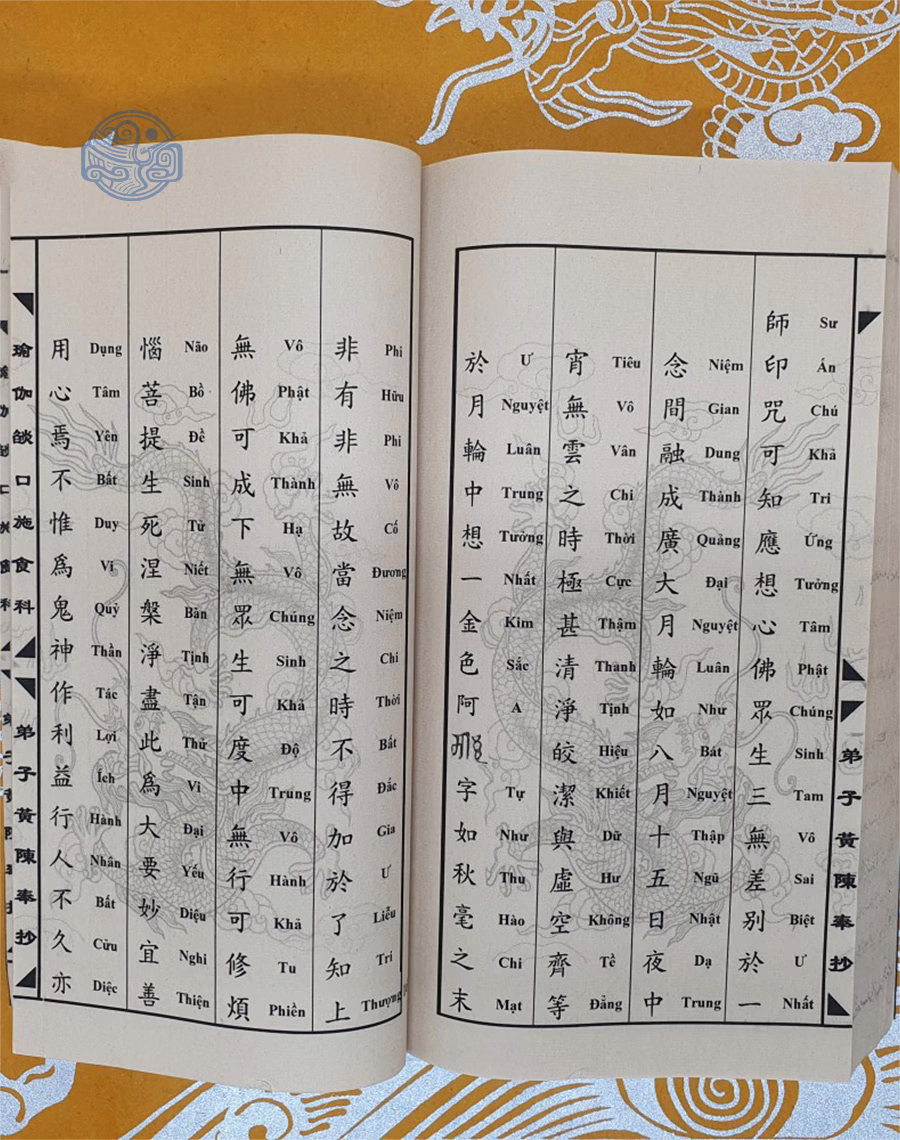 弟子黃陳奉抄
師印咒可知應想心佛眾生三無差別於一
Sư Án Chú Khả Tri Ứng Tưởng Tâm Phật Chúng Sinh Tam Vô Sai Biệt Ư Nhất
念間融成廣大月輪如八月十五日夜中
Niệm Gian Dung Thành Quảng Đại Nguyệt Luân Như Bát Nguyệt Thập Ngũ Nhật Dạ Trung
宵無雲之時極甚清淨皎潔與虛空齊等
Tiêu Vô Vân Chi Thời Cực Thậm Thanh Tịnh Hiệu Khiết Dữ Hư Không Tề Đẳng
於月輪中想一金色阿字如秋毫之末
Ư Nguyệt Luân Trung Tưởng Nhất Kim Sắc A Tự Như Thu Hào Chi Mạt
非有非無故當念之時不得加於了知上
Phi Hữu Phi Vô Cố Đương Niệm Chi Thời Bất Đắc Gia Ư Liễu Tri Thượng
無佛可成下無眾生可度中無行可修煩
Vô Phật Khả Thành Hạ Vô Chúng Sinh Khả Độ Trung Vô Hành Khả Tu Phiền
惱菩提生死涅槃淨盡此為大要妙宜善
Não Bồ Đề Sinh Tử Niết Bàn Tịnh Tận Thử Vi Đại Yếu Diệu Nghi Thiện
用心焉不惟為鬼神作利益行人不久亦
Dụng Tâm Yên Bất Duy Vị Quỷ Thần Tác Lợi Ích Hành Nhân Bất Cửu Diệc
瑜伽燄口施食科
弟子黃陳奉抄